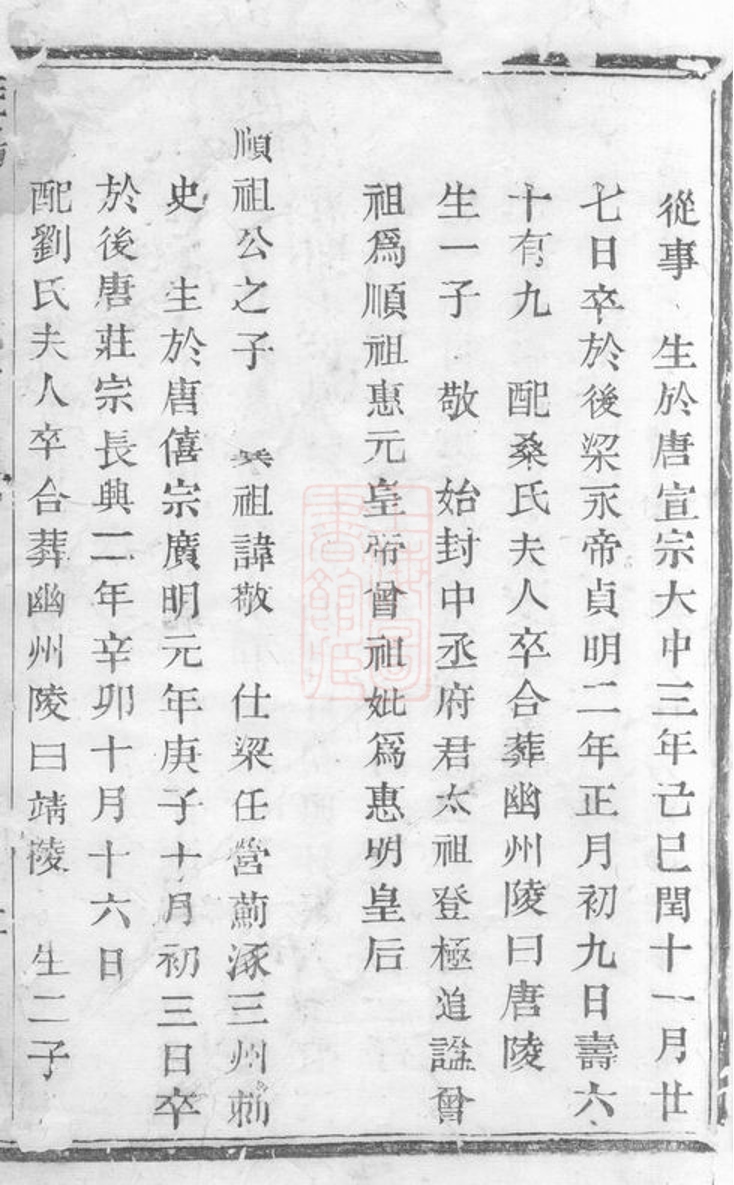 從事 生於唐宣宗大中三年己巳閏十一月廿
七日卒於後梁末帝貞明二年正月初九日壽六
十有九 配桑氏夫人卒合葬幽州陵曰唐陵
生一子 敬 始封中丞府君太祖登極追諡曾
祖爲順祖惠元皇帝曾祖妣爲惠明皇后
順祖公之子 祖諱敬 仕梁任營薊涿三州刺
史 生於唐僖宗廣明元年庚子十月初三日卒
於後唐莊宗長興二年辛卯十月十六日
配劉氏夫人卒合葬幽州陵曰靖陵 生二子